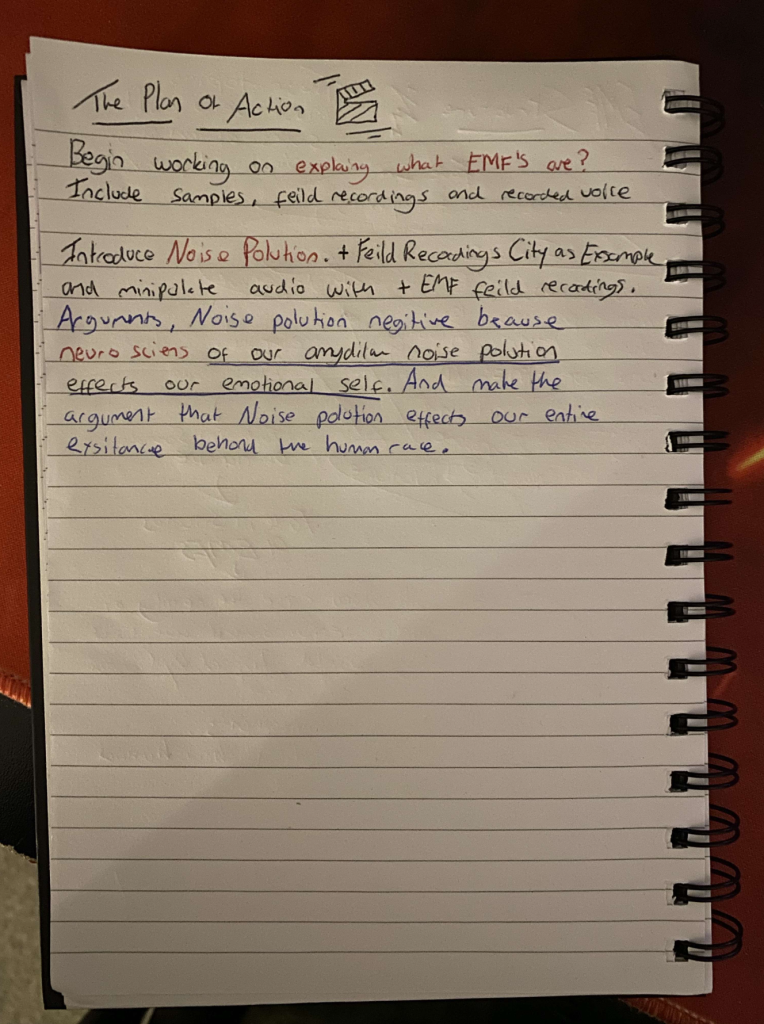 The Plan of Action
Begin working on explaing what EMF'S are?
Include samples, feild recordings and recorded voice
Introduce Noise Polution. + Feild Recordings City as Example
and minipulate audio with + EMF feild recordings.
Arguments, Noise polution negitive beause
neuro sciens of our amydilar noise polution
effects our emotional self. And make the
argument that Noise polution effects our entire
exsitance behond the human race.